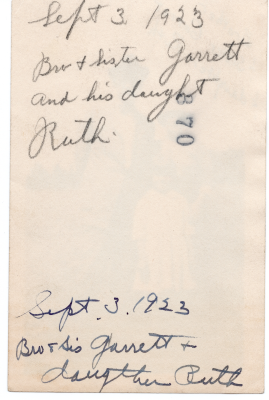 Sept 3 1923
Bro + Sister Garrett
and his daught
Ruth.
870
Sept. 3. 1923
Bro + Sis Garrett +
daugther Ruth